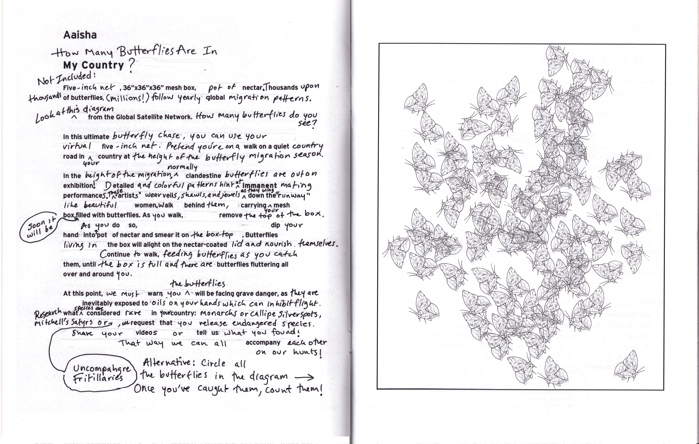 Aaisha
How Many Butterflies Are In
My Country?
Not Included:
Five-inch net, 36"x36"x36" mesh box, pot of nectar, Thousands upon
thousands of butterflies, (millions!) follow yearly global migration patterns.
Look at this diagram from the Global Satellite Network. How many butterflies do you
see?
In this ultimate butterfly chase, you can use your
virtual five-inch net. Pretend you're on a walk on a quiet country
road in your country at the height of the butterfly migration season.
In the height of the migration, normally clandestine butterflies are out on
exhibition! Detailed and colorful patterns hint at immanent mating
performances, these "artists" wear veils, shawls, and jewels as they wing down the "runway"
like beautiful women, walk behind them, carrying a mesh
Soon it will be
box filled with butterflies. As you walk, remove the top of the box.
As you do so, dip your
hand into your pot of nectar and smear it on the box top. Butterflies
living in the box will alight on the nectar-coated lid and nourish themselves.
Continue to walk, feeding butterflies as you catch
them, until the box is full and there are butterflies fluttering all
over and around you.
At this point, we must warn you the butterflies will be facing grave danger, as they are
inevitably exposed to oils on your hands which can inhibit flight.
Research what species are considered rare in your country: monarchs or callipe silverspots,
Mitchell's Satyrs or, we request that you release endangered species.
Share your videos or tell us what you found!
That way we can all accompany each other
on our hunts!
Uncompahgre
Fritillaries
Alternative: Circle all
the butterflies in the diagram →
Once you've caught them, count them!